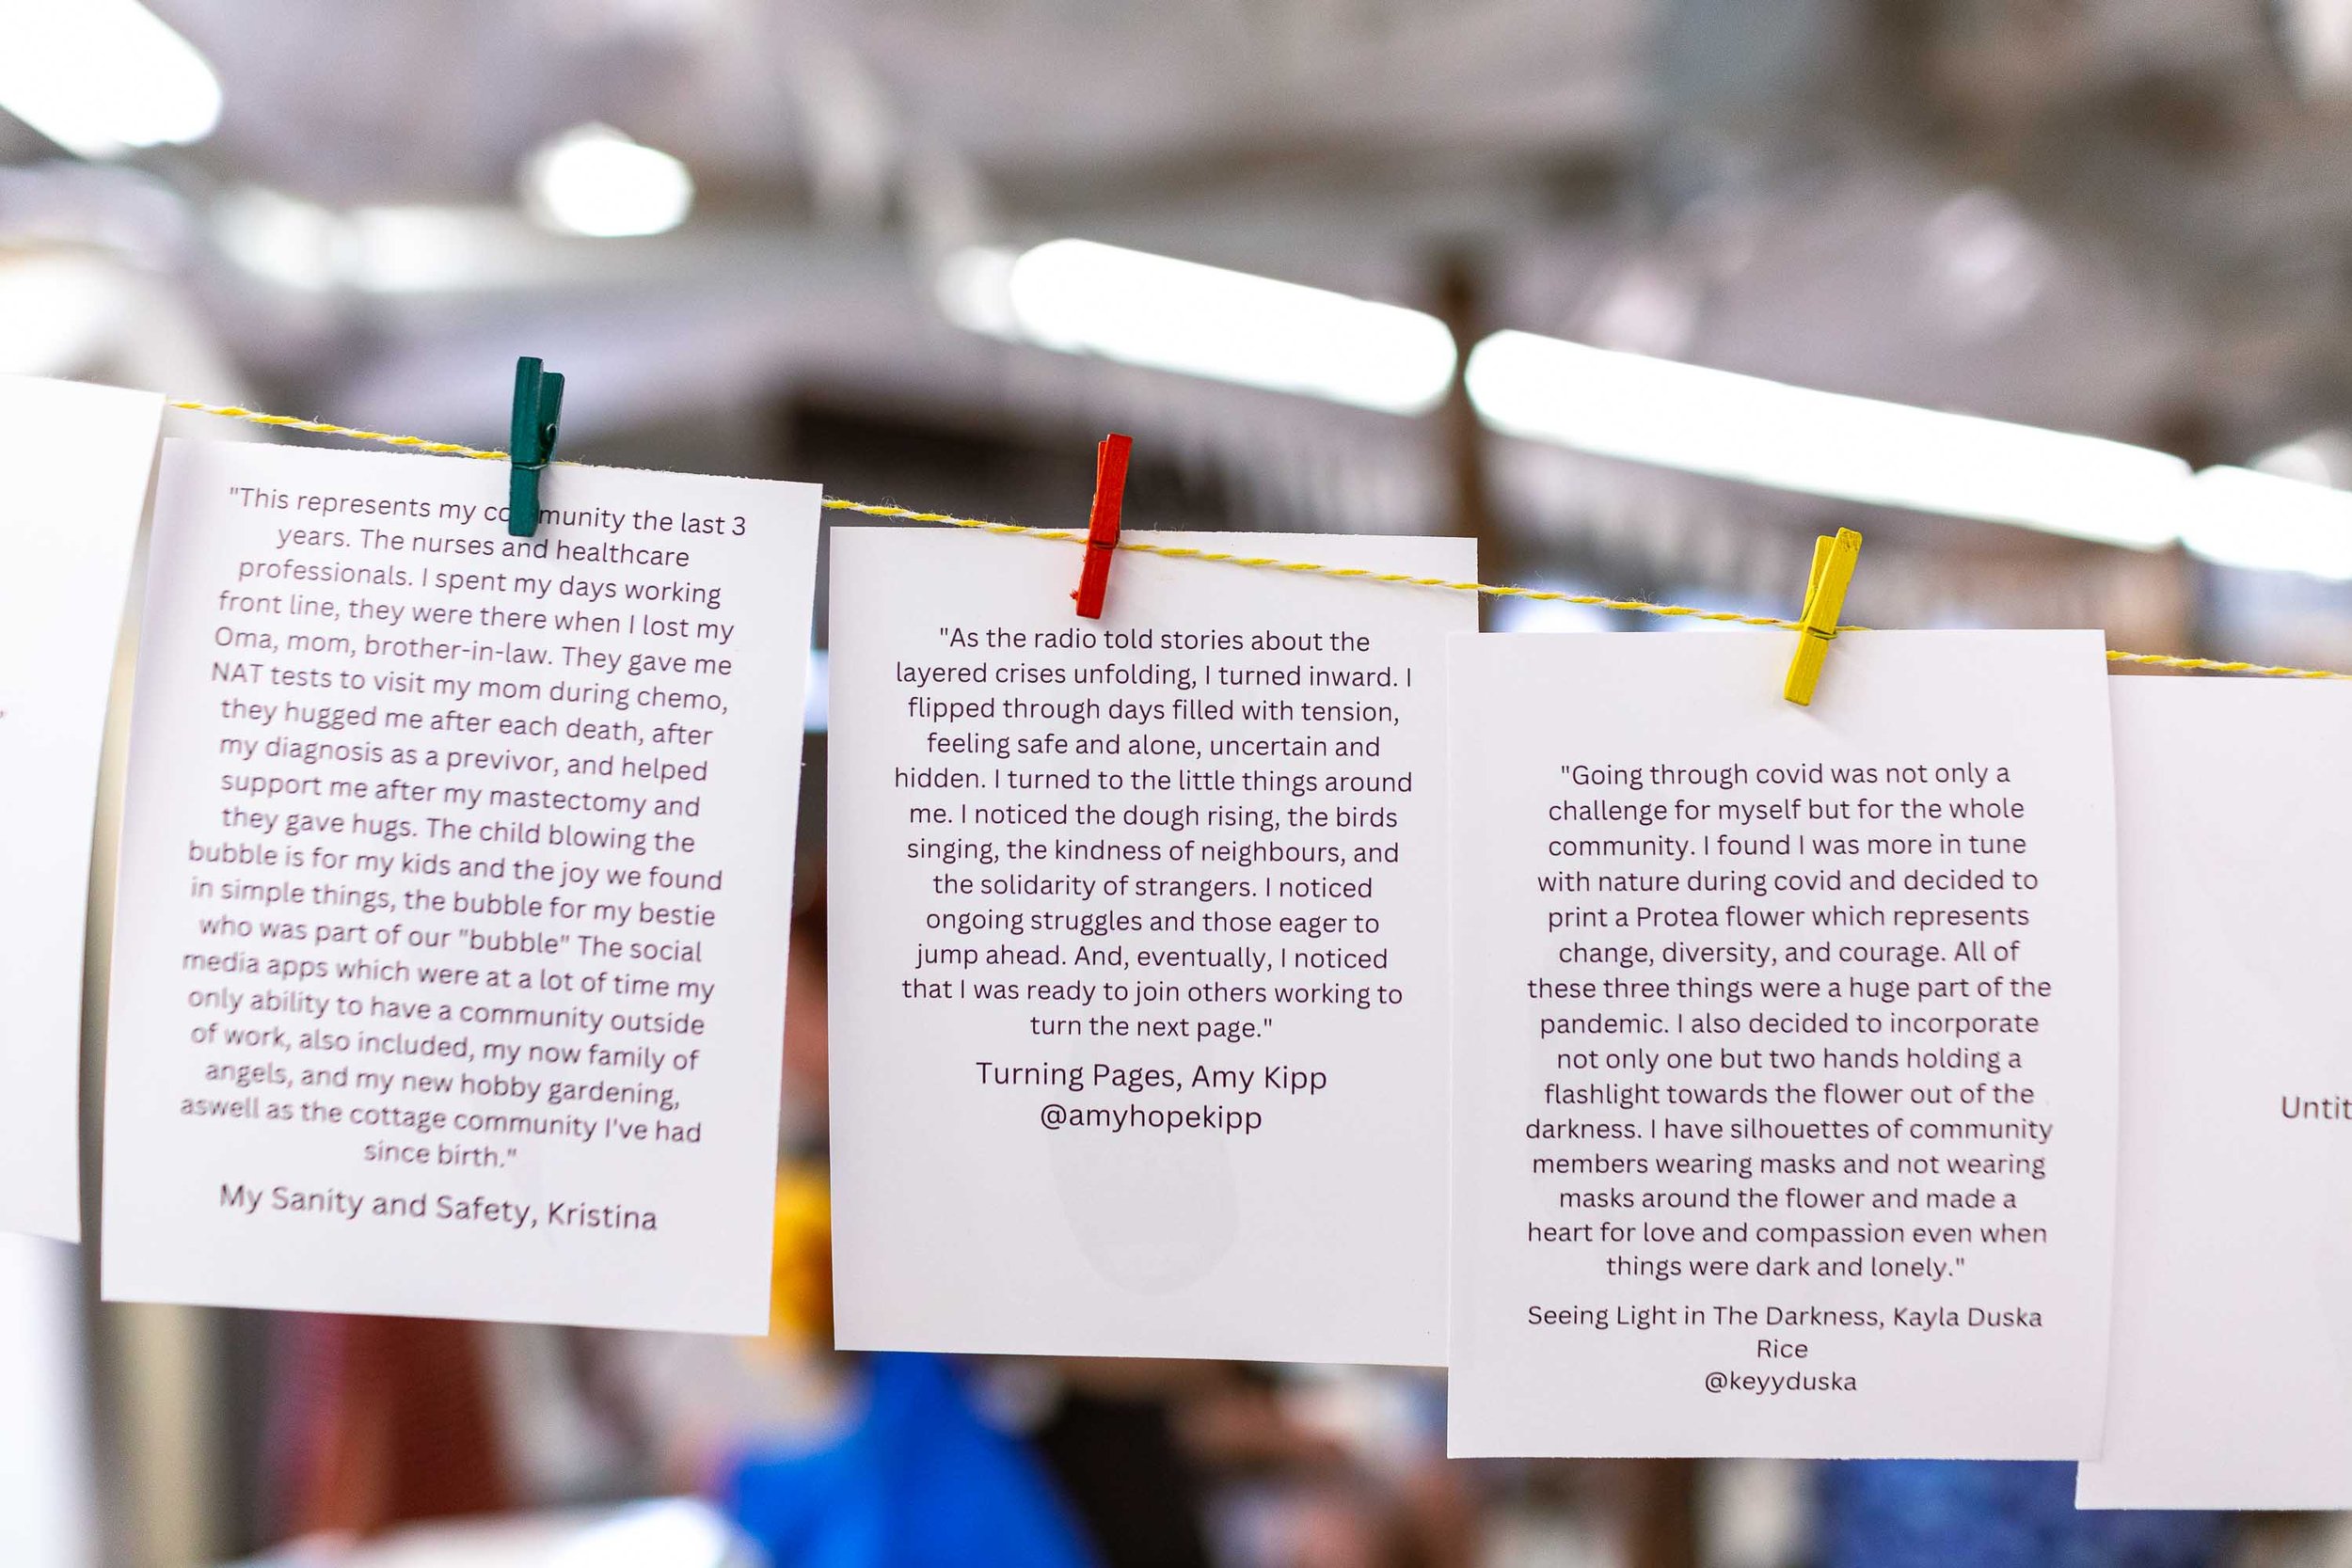 "This represents my community the last 3
years. The nurses and healthcare
professionals. I spent my days working
front line, they were there when I lost my
Oma, mom, brother-in-law. They gave me
NAT tests to visit my mom during chemo,
they hugged me after each death, after
my diagnosis as a previvor, and helped
support me after my mastectomy and
they gave hugs. The child blowing the
bubble is for my kids and the joy we found
in simple things, the bubble for my bestie
who was part of our "bubble" The social
media apps which were at a lot of time my
only ability to have a community outside
of work, also included, my now family of
angels, and my new hobby gardening,
aswell as the cottage community I've had
since birth."
My Sanity and Safety, Kristina
"As the radio told stories about the
layered crises unfolding, I turned inward. I
flipped through days filled with tension,
feeling safe and alone, uncertain and
hidden. I turned to the little things around
me. I noticed the dough rising, the birds
singing, the kindness of neighbours, and
the solidarity of strangers. I noticed
ongoing struggles and those eager to
jump ahead. And, eventually, I noticed
that I was ready to join others working to
turn the next page."
Turning Pages, Amy Kipp
@amyhopekipp
"Going through covid was not only a
challenge for myself but for the whole
community. I found I was more in tune
with nature during covid and decided to
print a Protea flower which represents
change, diversity, and courage. All of
these three things were a huge part of the
pandemic. I also decided to incorporate
not only one but two hands holding a
flashlight towards the flower out of the
darkness. I have silhouettes of community
members wearing masks and not wearing
masks around the flower and made a
heart for love and compassion even when
things were dark and lonely."
Seeing Light in The Darkness, Kayla Duska
Rice
@keyyduska
Untit